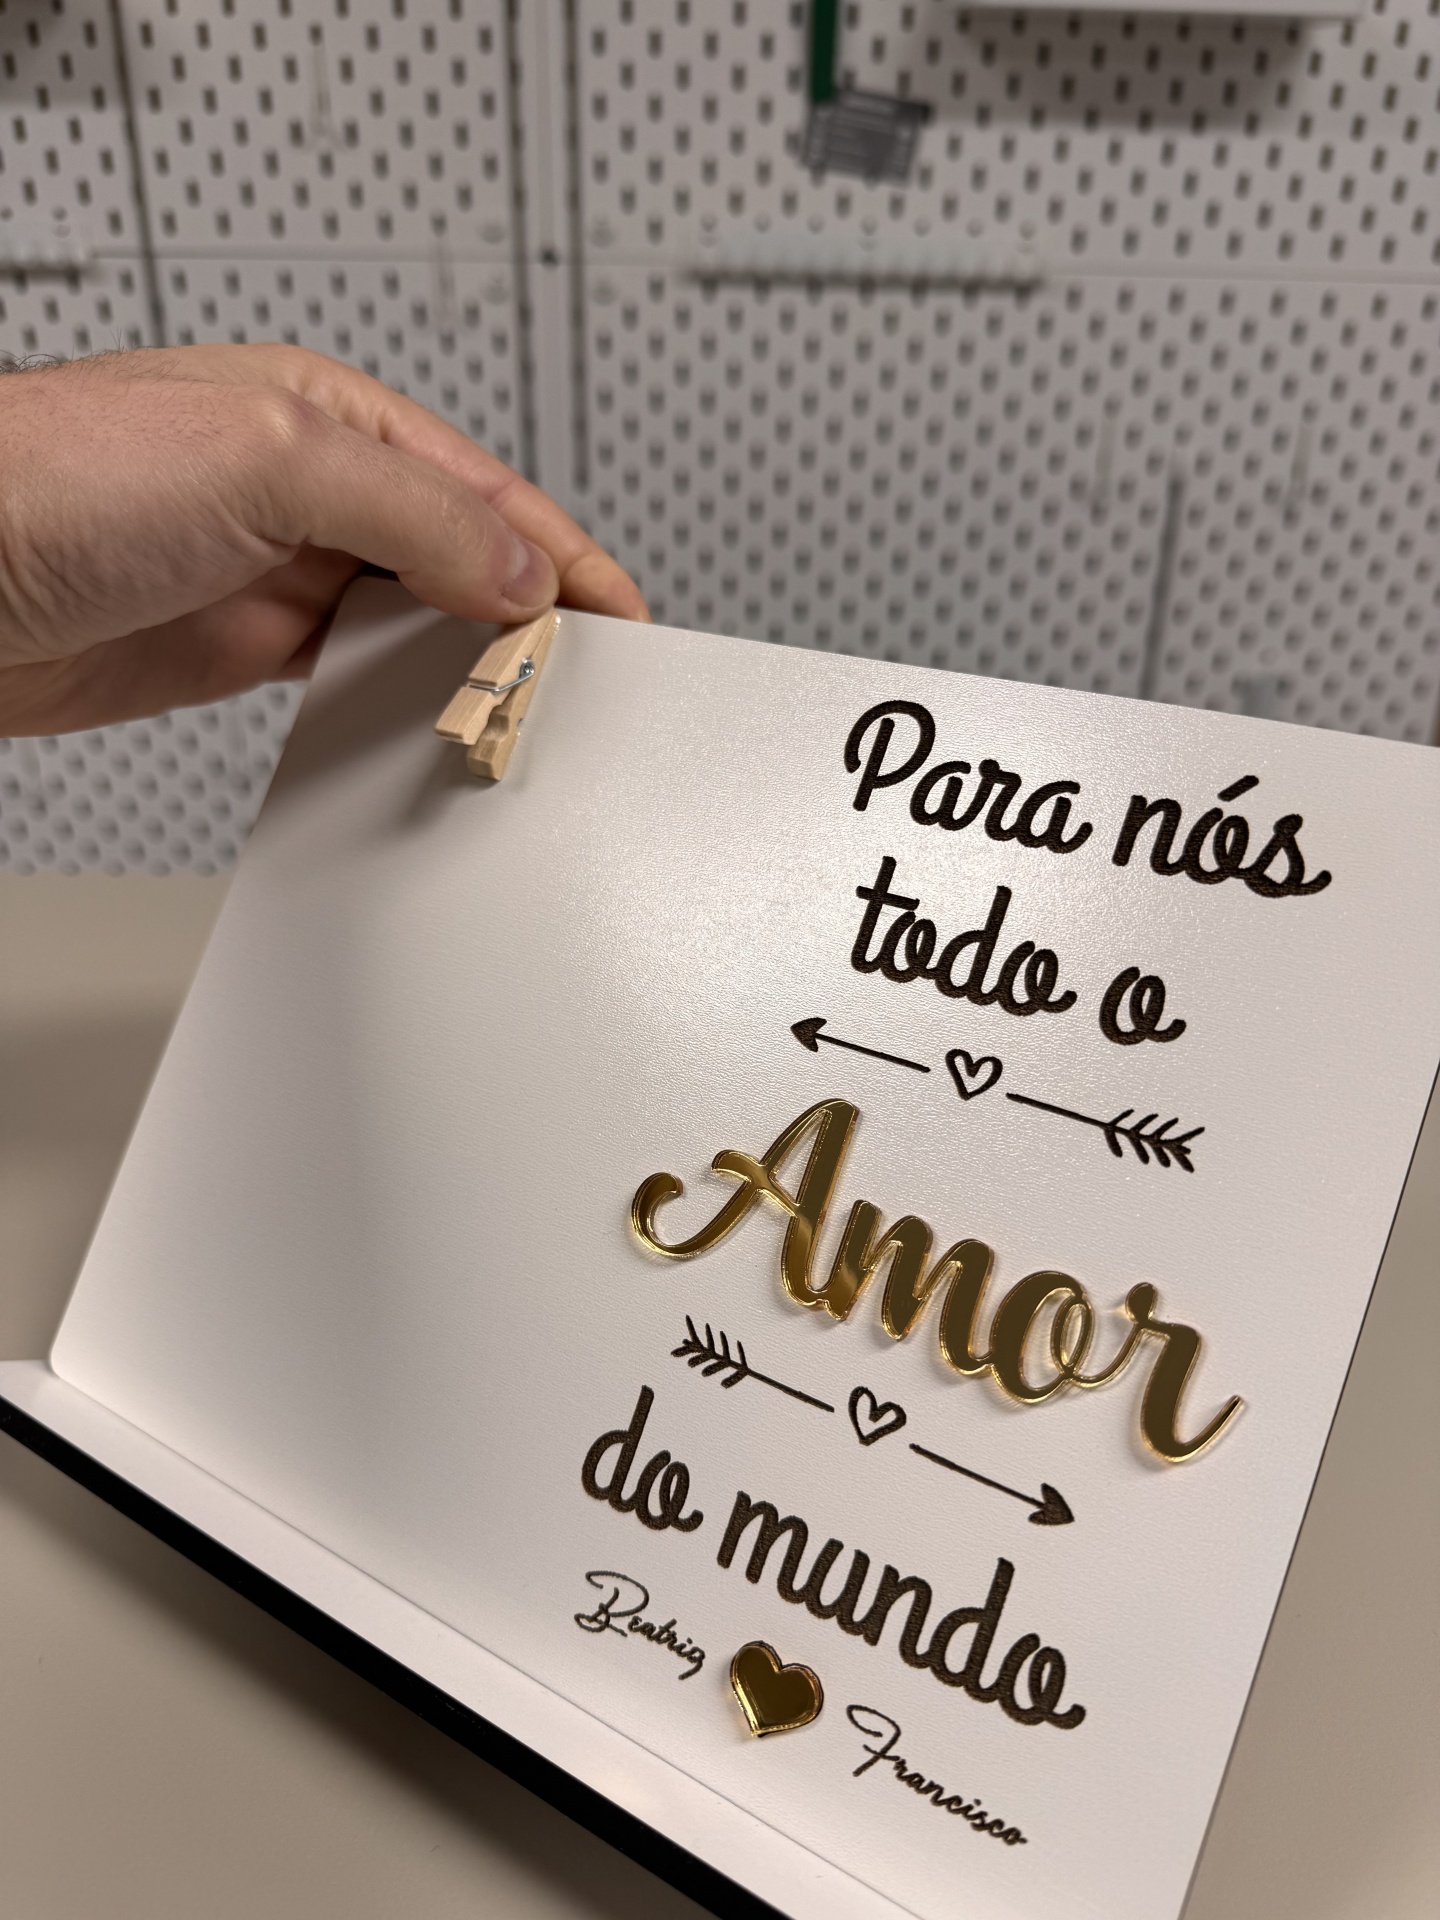 Para nós
todo o
Amor
do mundo
Beatriz
Francisco